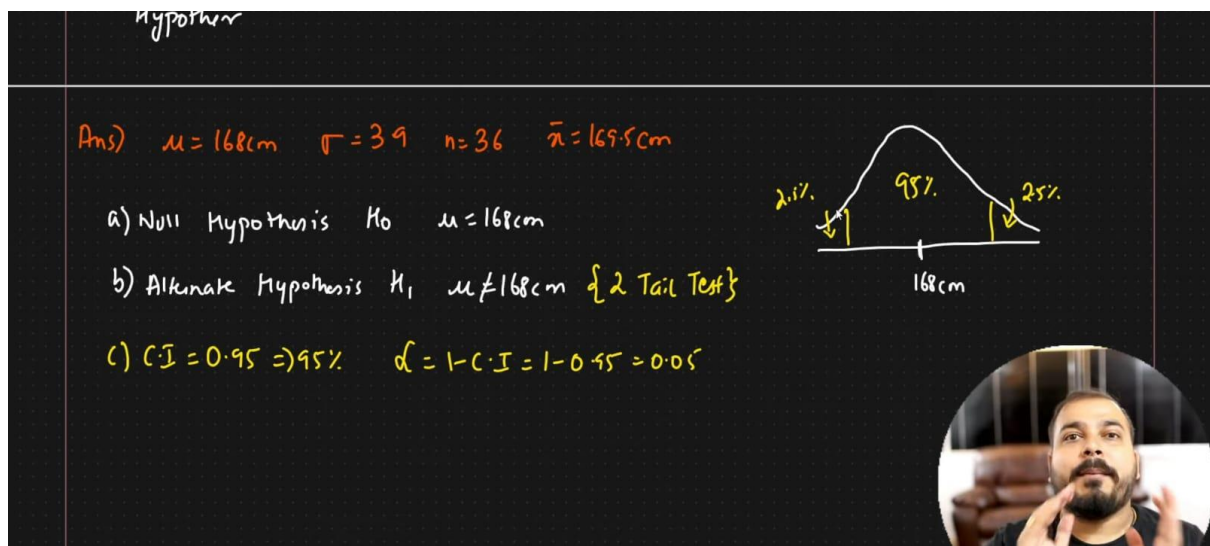 Hypother
Ans) μ = 168cm σ = 3.9 n = 36 x̄ = 169.5cm
a) Null Hypothesis H₀ μ = 168cm
b) Alternate Hypothesis H₁ μ ≠ 168cm {2 Tail Test}
c) C.I = 0.95 => 95% α = 1 - C.I = 1 - 0.95 = 0.05
2.5% 95% 2.5%
168cm